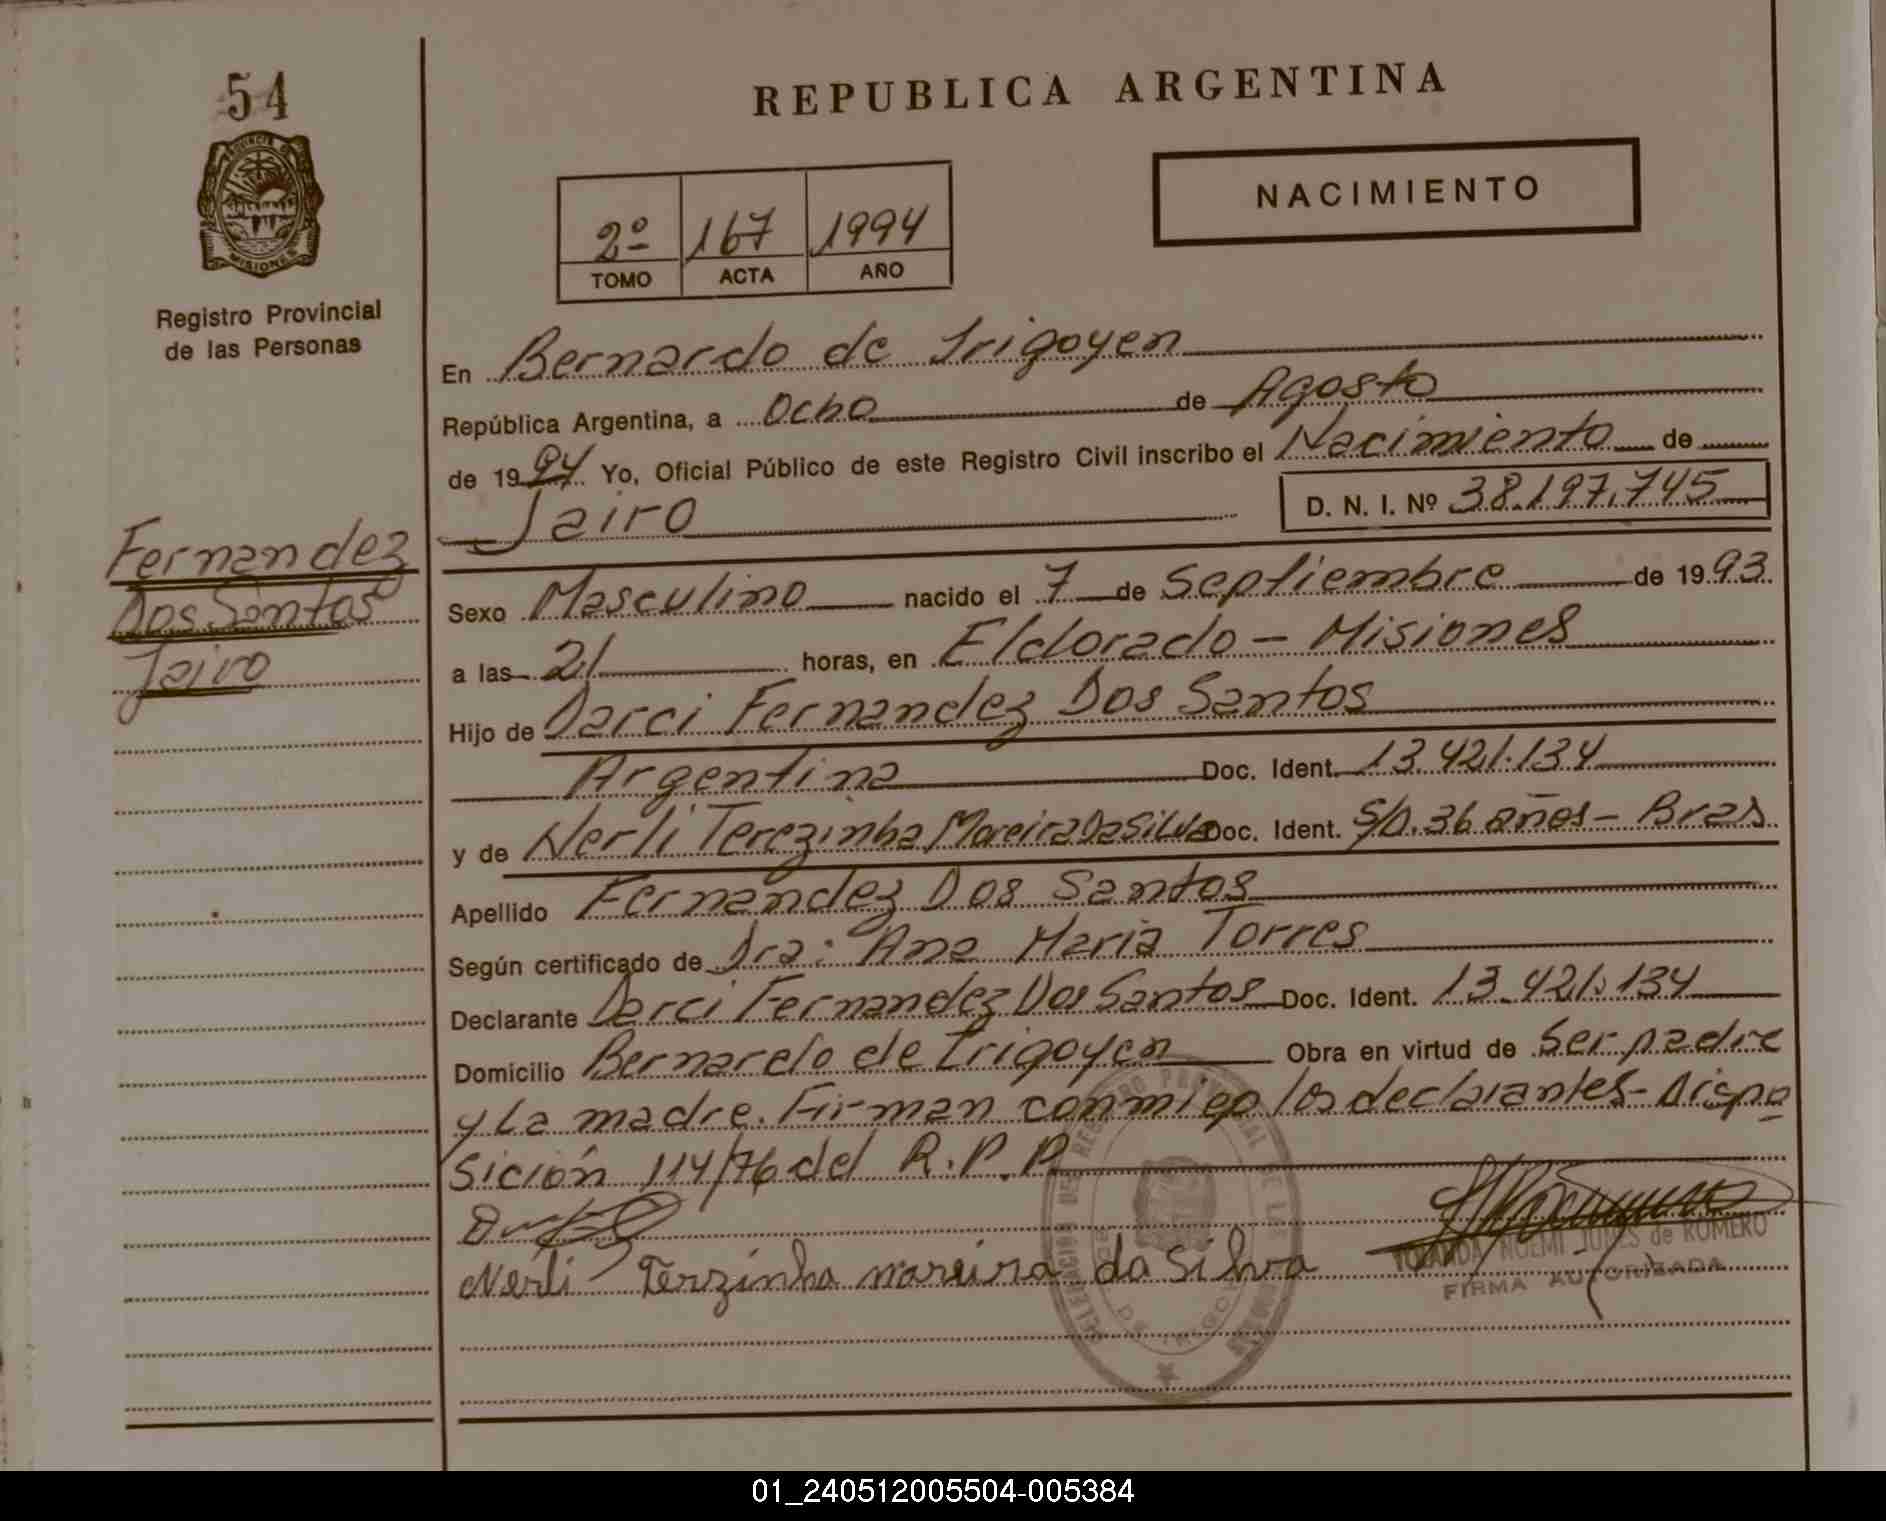 54
REPUBLICA ARGENTINA
NACIMIENTO
2º 167 1994
TOMO ACTA AÑO
MISIONES
Registro Provincial
de las Personas
En Bernardo de Irigoyen
República Argentina, a Ocho de Agosto
de 1994 Yo, Oficial Público de este Registro Civil inscribo el Nacimiento de
Jairo D. N. I. Nº 38.197.745
Fernandez
Dos Santos
Jairo
Sexo Masculino nacido el 7 de Septiembre de 1993
a las 21 horas, en Eldorado - Misiones
Hijo de Darci Fernandez Dos Santos
Argentina Doc. Ident. 13.421.134
y de Nerli Terezinha Moreira Da Silva Doc. Ident. S/D. 36 años - Bras
Apellido Fernandez Dos Santos
Según certificado de Dra: Ana Maria Torres
Declarante Darci Fernandez Dos Santos Doc. Ident. 13.421.134
Domicilio Bernardo de Irigoyen Obra en virtud de Ser padre
y La madre. Firman conmigo los declarantes - Dispo
sición 114/76 del R.P.P
Nerli Terzinha mareira da Silva
YOLANDA NOEMI JUNES de ROMERO
FIRMA AUTORIZADA
01_240512005504-005384